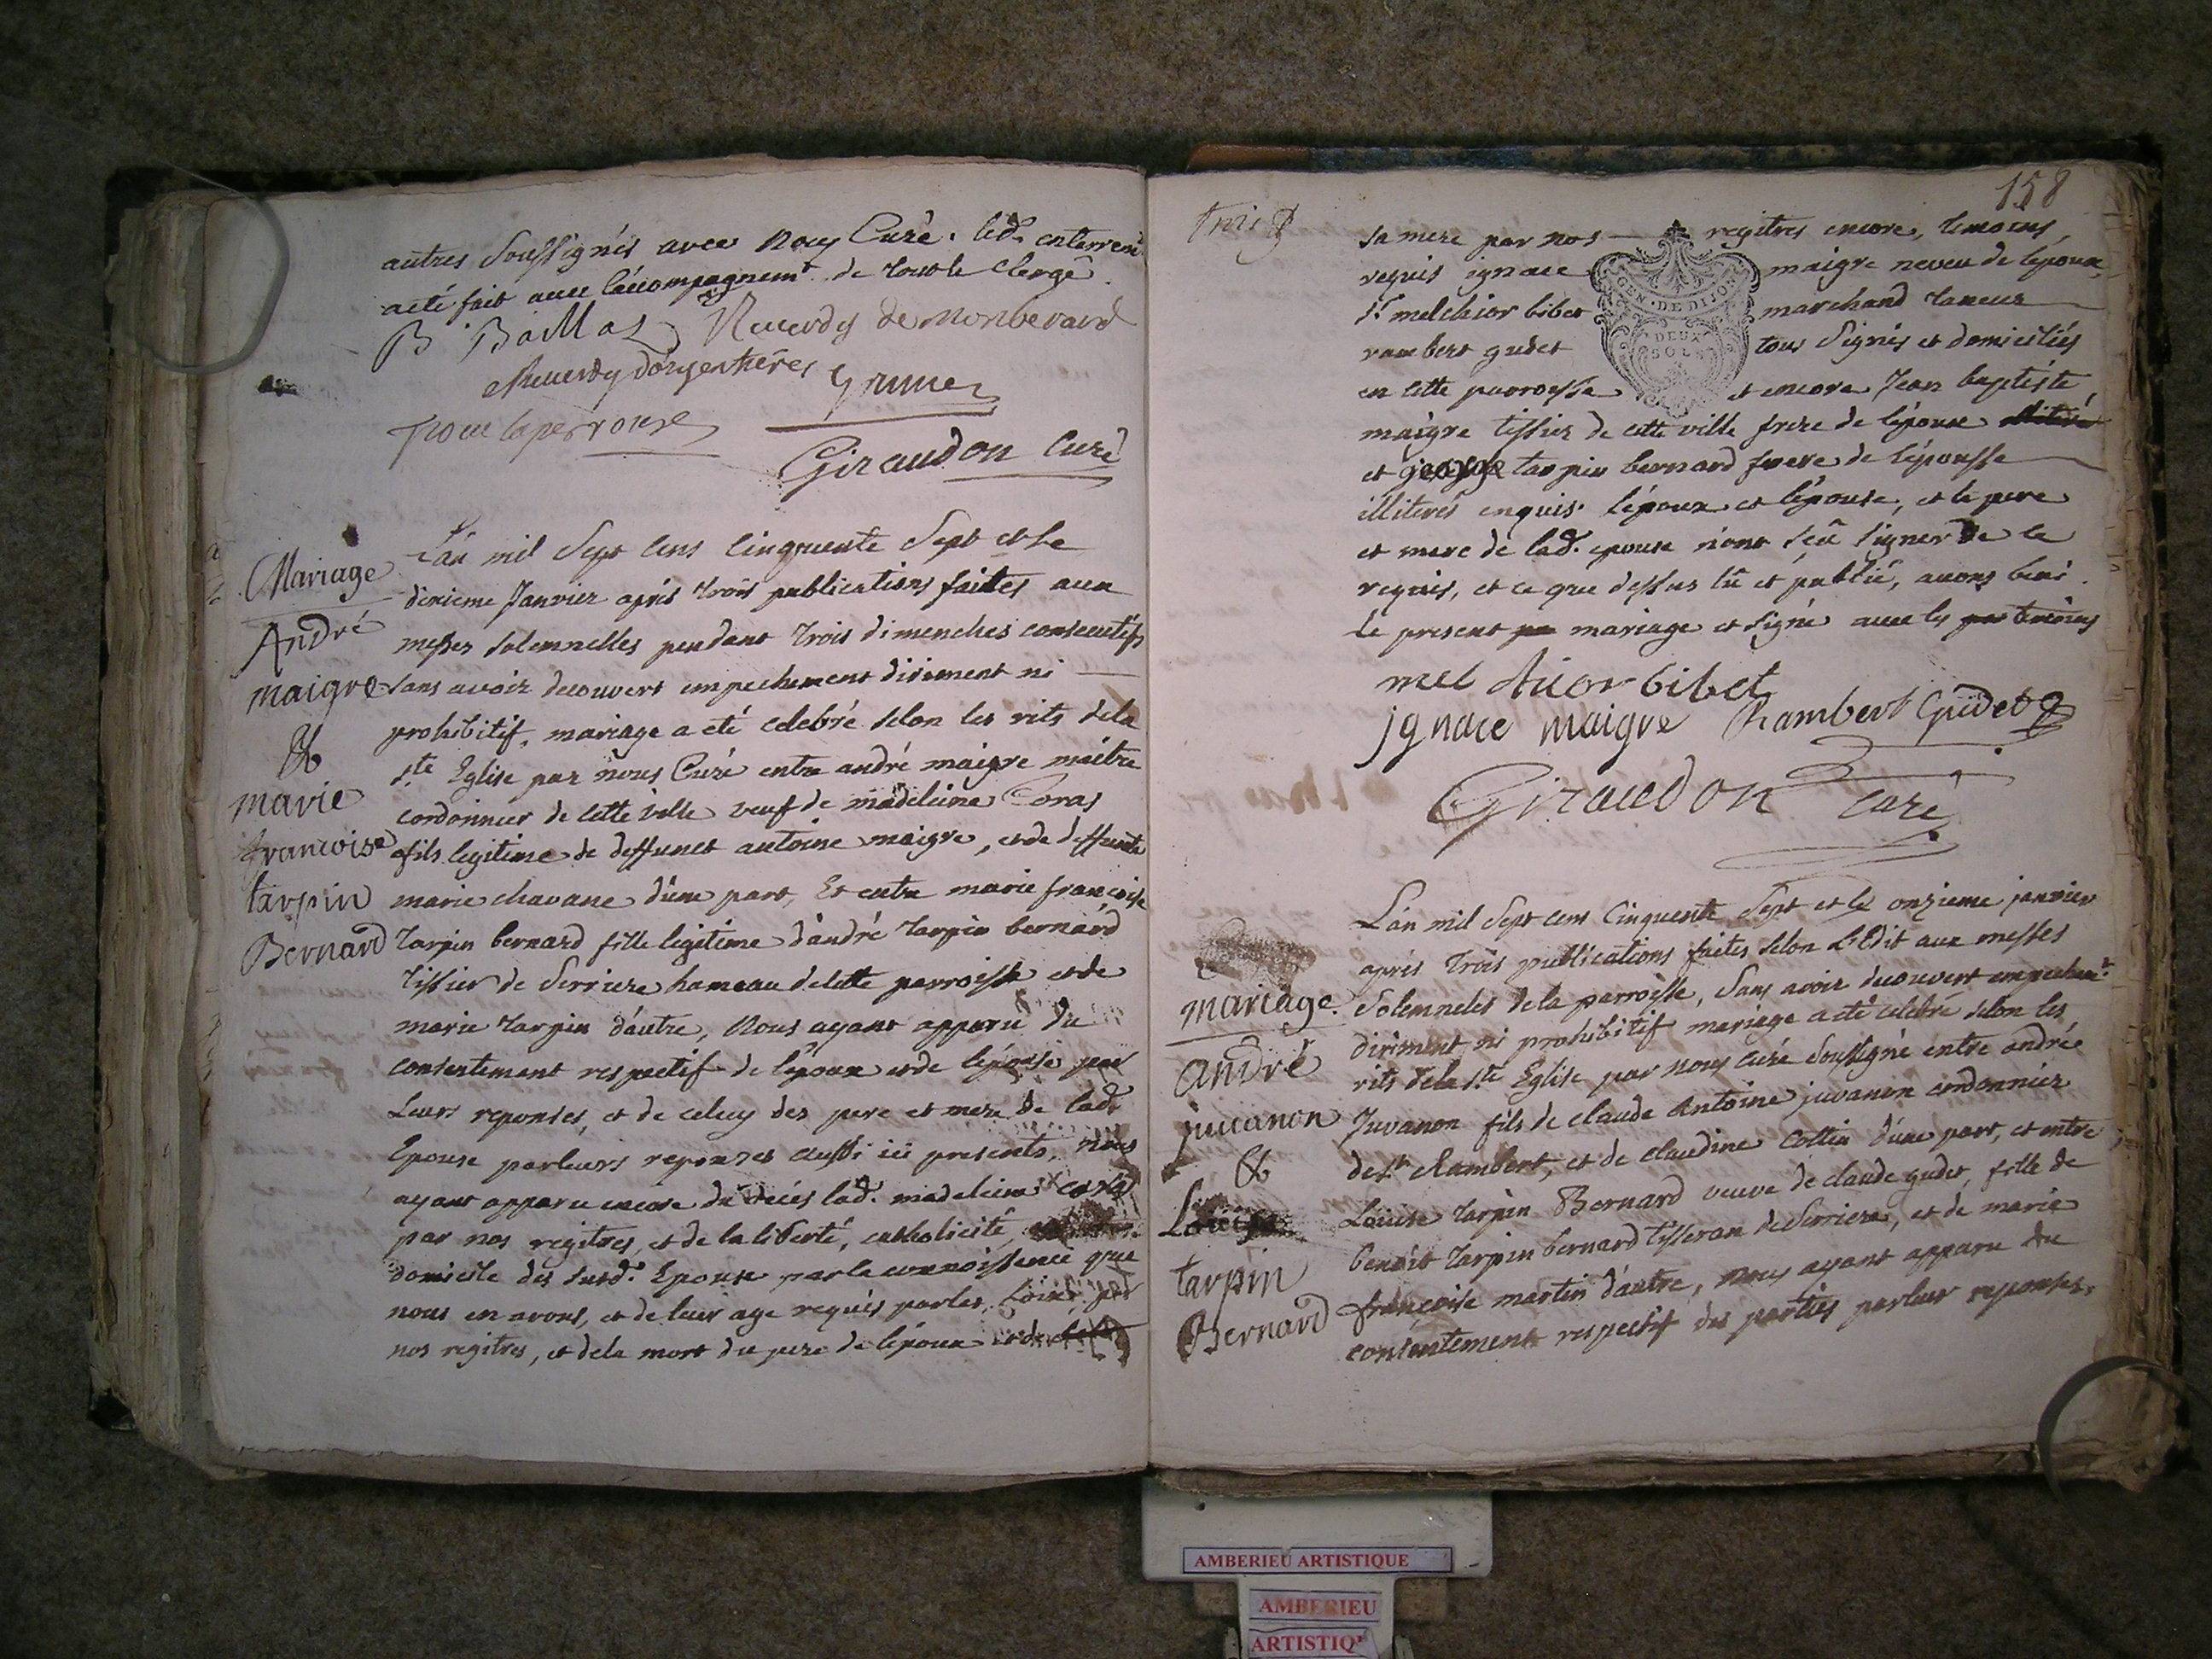 autres soussignés avec nous Curé. led. enterrem.
a eté fait avec l'accompagnem.t de tout le Clergé
B Baillat Reuerdy de Monberard
Reuerdy dargentieres Grumet
Trocu laperrouse
Giraudon Curé
Mariage
André
maigre
&
marie
francoise
tarpin
Bernard
L'an mil Sept Cens Cinquente Sept et Le
dixieme Janvier aprés trois publications faittes aux
messes solemnelles pendant trois dimenches consecutifs
sans avoir decouvert empechement diriment ni
prohibitif, mariage a eté celebré selon les rits dela
s.te Eglise par nous Curé entre andré maigre maitre
cordonnier de cette ville veuf de madeleine Coras
fils legitime de deffunct antoine maigre, et de deffuncte
marie chavane d'une part, Et entre marie françoise
tarpin bernard fille legitime d'andré tarpin bernard
tissier de Serriere hameau de cette parroisse et de
marie tarpin d'autre, Nous ayant apparu du
consentement respectif de l'époux et de l'épouse par
Leurs reponses, et de celuy des pere et mere de lad.
Epouse par leurs reponses aussi ici presents, nous
ayant apparu encore du decés lad. madeleine coras
par nos registres, et de la liberté, catholicité,
domicile des susd. Epoux par la connoissance que
nous en avons, et de leur age requis par les Loix, par
nos regitres, et dela mort du pere de l'époux et de
158
trois
sa mere par nos registres encore, temoins
requis ignace maigre neveu de l'epoux,
s.r melchior bibet marchand taneur
rambert gudet tous signés et domiciliés
en cette parroisse et encore Jean baptiste
GEN · DE DIJON
DEUX
SOLS
maigre tissier de cette ville frere de l'époux
et george tarpin bernard frere de l'épousse
illiterés enquis. l'époux et l'épouse, et le pere
et mere de lad. epouse n'ont sçû signer de ce
requis, et ce que dessus lû et publié, avons beni
le present mariage et signé avec les temoins
mel chior bibet
jgnace maigre Rambert Gudet
Giraudon curé
mariage.
André
juuanon
&
Louise
tarpin
Bernard
L'an mil Sept cens Cinquente Sept et le onzieme janvier
aprés trois publications faites selon L'Edit aux messes
solemneles dela parroisse, sans avoir decouvert empechem.t
diriment ni prohibitif mariage a eté celebré selon les
rits dela s.te Eglise par nous curé soussigné entre andrée
Juvanon fils de claude Antoine juvanon cordonnier
de s.t Rambert, et de claudine Cottin d'une part, et entre
Louise tarpin Bernard veuve de claude gudet, fille de
benoit tarpin bernard tisseran de Serriere, et de marie
françoise martin d'autre, nous ayant apparu du
consentement respectif des parties par leur reponses.
AMBERIEU ARTISTIQUE
AMBERIEU
ARTISTIQ